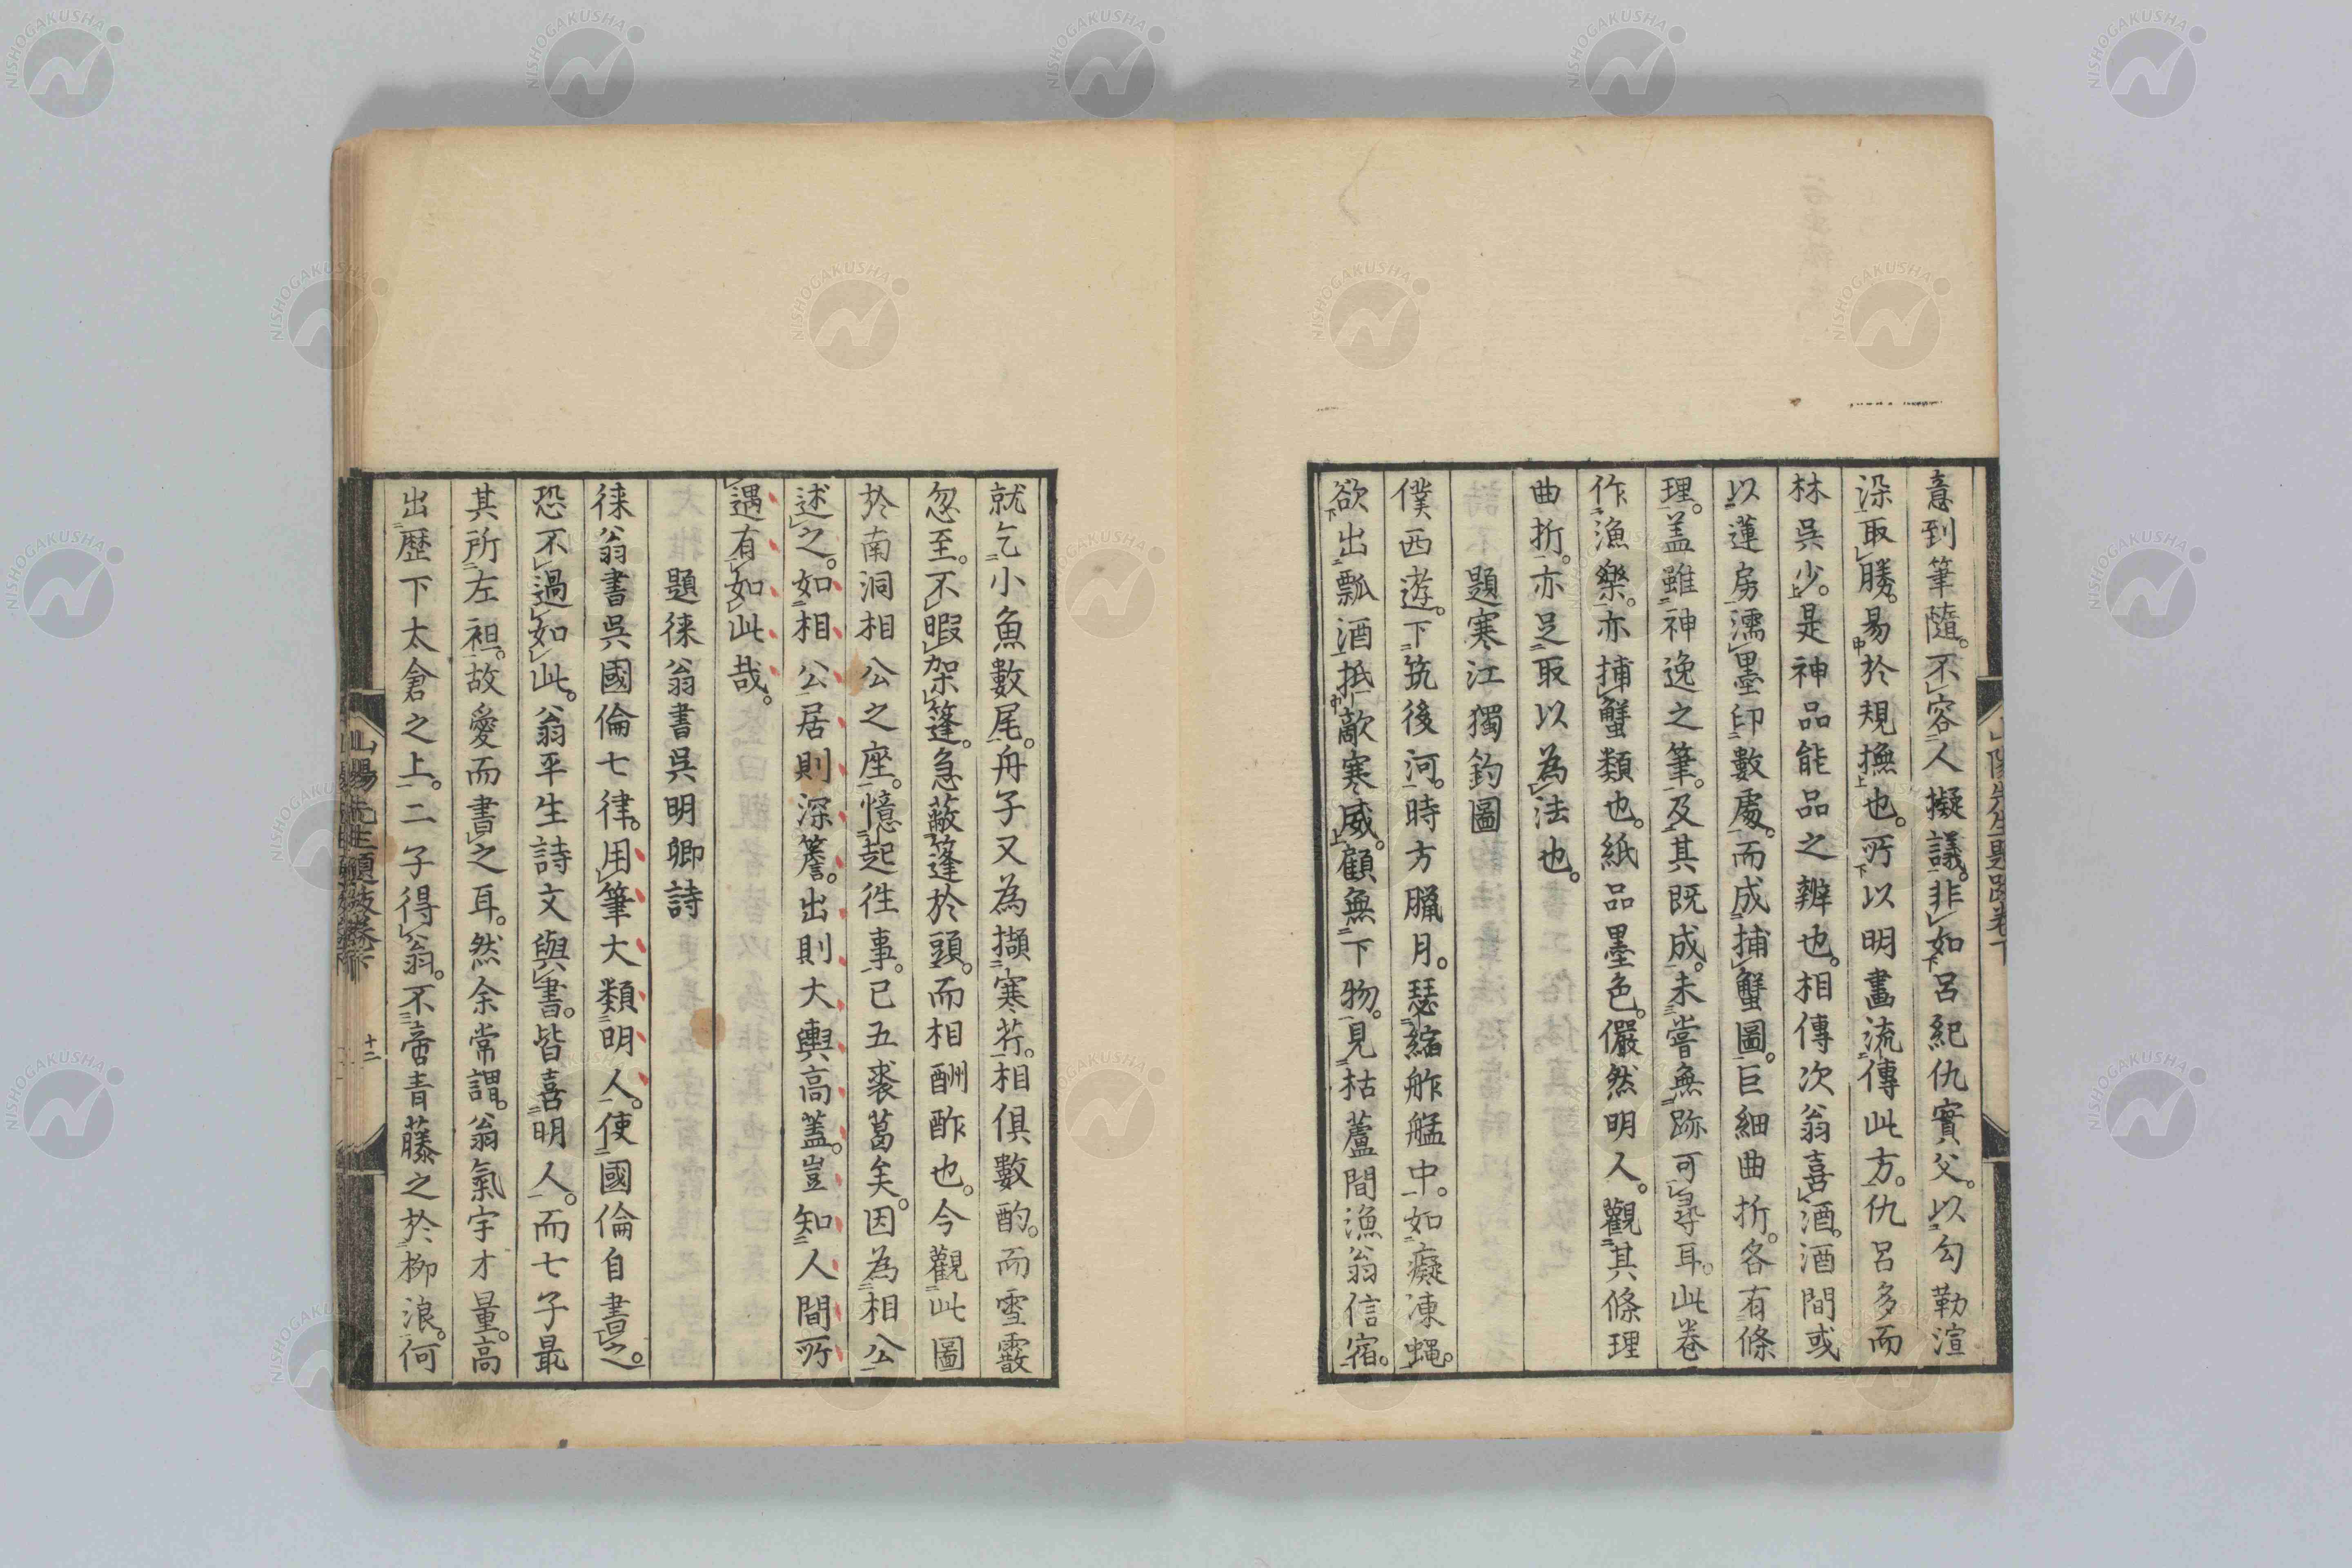 意到筆隨。不容人擬議。非如呂紀仇實父。以勾勒渲
深取勝。易於規撫也。所以明畫流傳此方。仇呂多而
林呉少。是神品能品之辨也。相傳次翁喜酒。酒間或
以蓮房濡墨印數處。而成捕蟹圖。巨細曲折。各有條
理。盖雖神逸之筆。及其既成。未嘗無跡可尋耳。此卷
作漁樂。亦捕蟹類也。紙品墨色。儼然明人。觀其條理
曲折。亦足取以為法也。
題寒江獨釣圖
僕西遊。下筑後河。時方臘月。瑟縮舴艋中。如癡凍蠅。
欲出瓢酒抵敵寒威。顧無下物。見枯蘆間漁翁信宿。
就乞小魚數尾。舟子又為擷寒芹。相俱數酌。而雪霰
忽至。不暇架篷。急蔽篷於頭。而相酬酢也。今觀此圖
於南洞相公之座。憶起徃事。已五裘葛矣。因為相公
述之。如相公居則深簷。出則大輿高蓋。豈知人間所
遇有如此哉。
題徠翁書呉明卿詩
徠翁書呉國倫七律。用筆大類明人。使國倫自書之。
恐不過如此。翁平生詩文與書。皆喜明人。而七子最
其所左袒。故愛而書之耳。然余常謂。翁氣宇才量。高
出歷下太倉之上。二子得翁。不啻青藤之於柳浪。何
山陽先生題跋卷下
十二
山陽先生題跋卷下
NISHOGAKUSHA